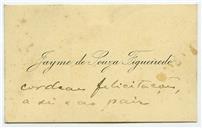 Jayme de Souza Figueiredo
cordeaes felicitações,
a si e aos pais